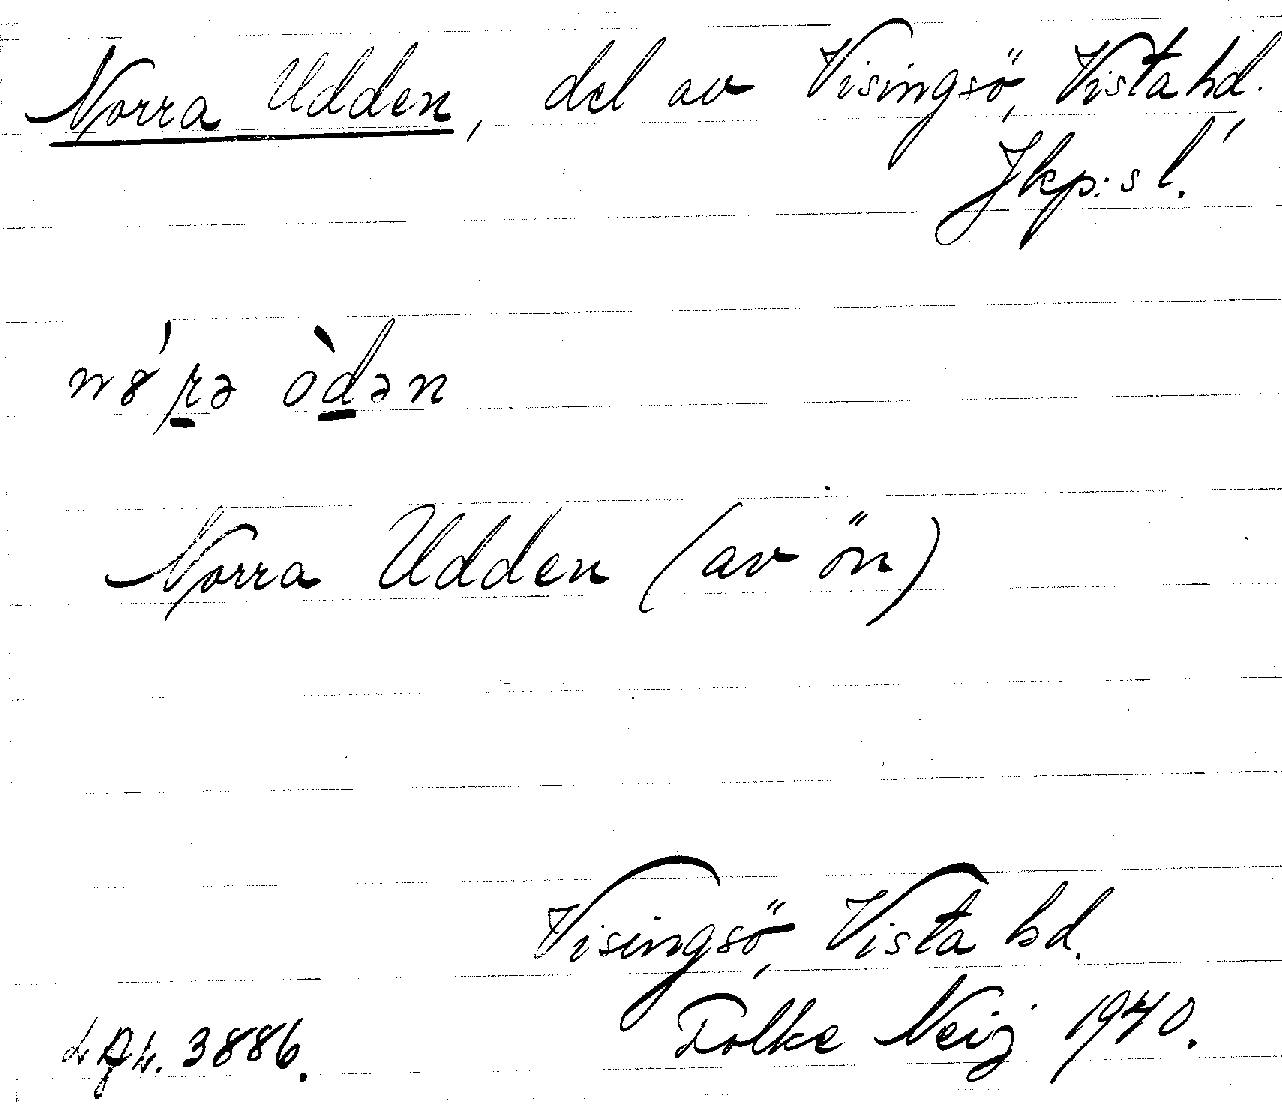 Norra Udden, del av Visingsö, Vista hd.,
Jkp:s l.
Norra Udden (av ön)
Visingsö, Vista hd.
Folke Neij 1940.
3886.